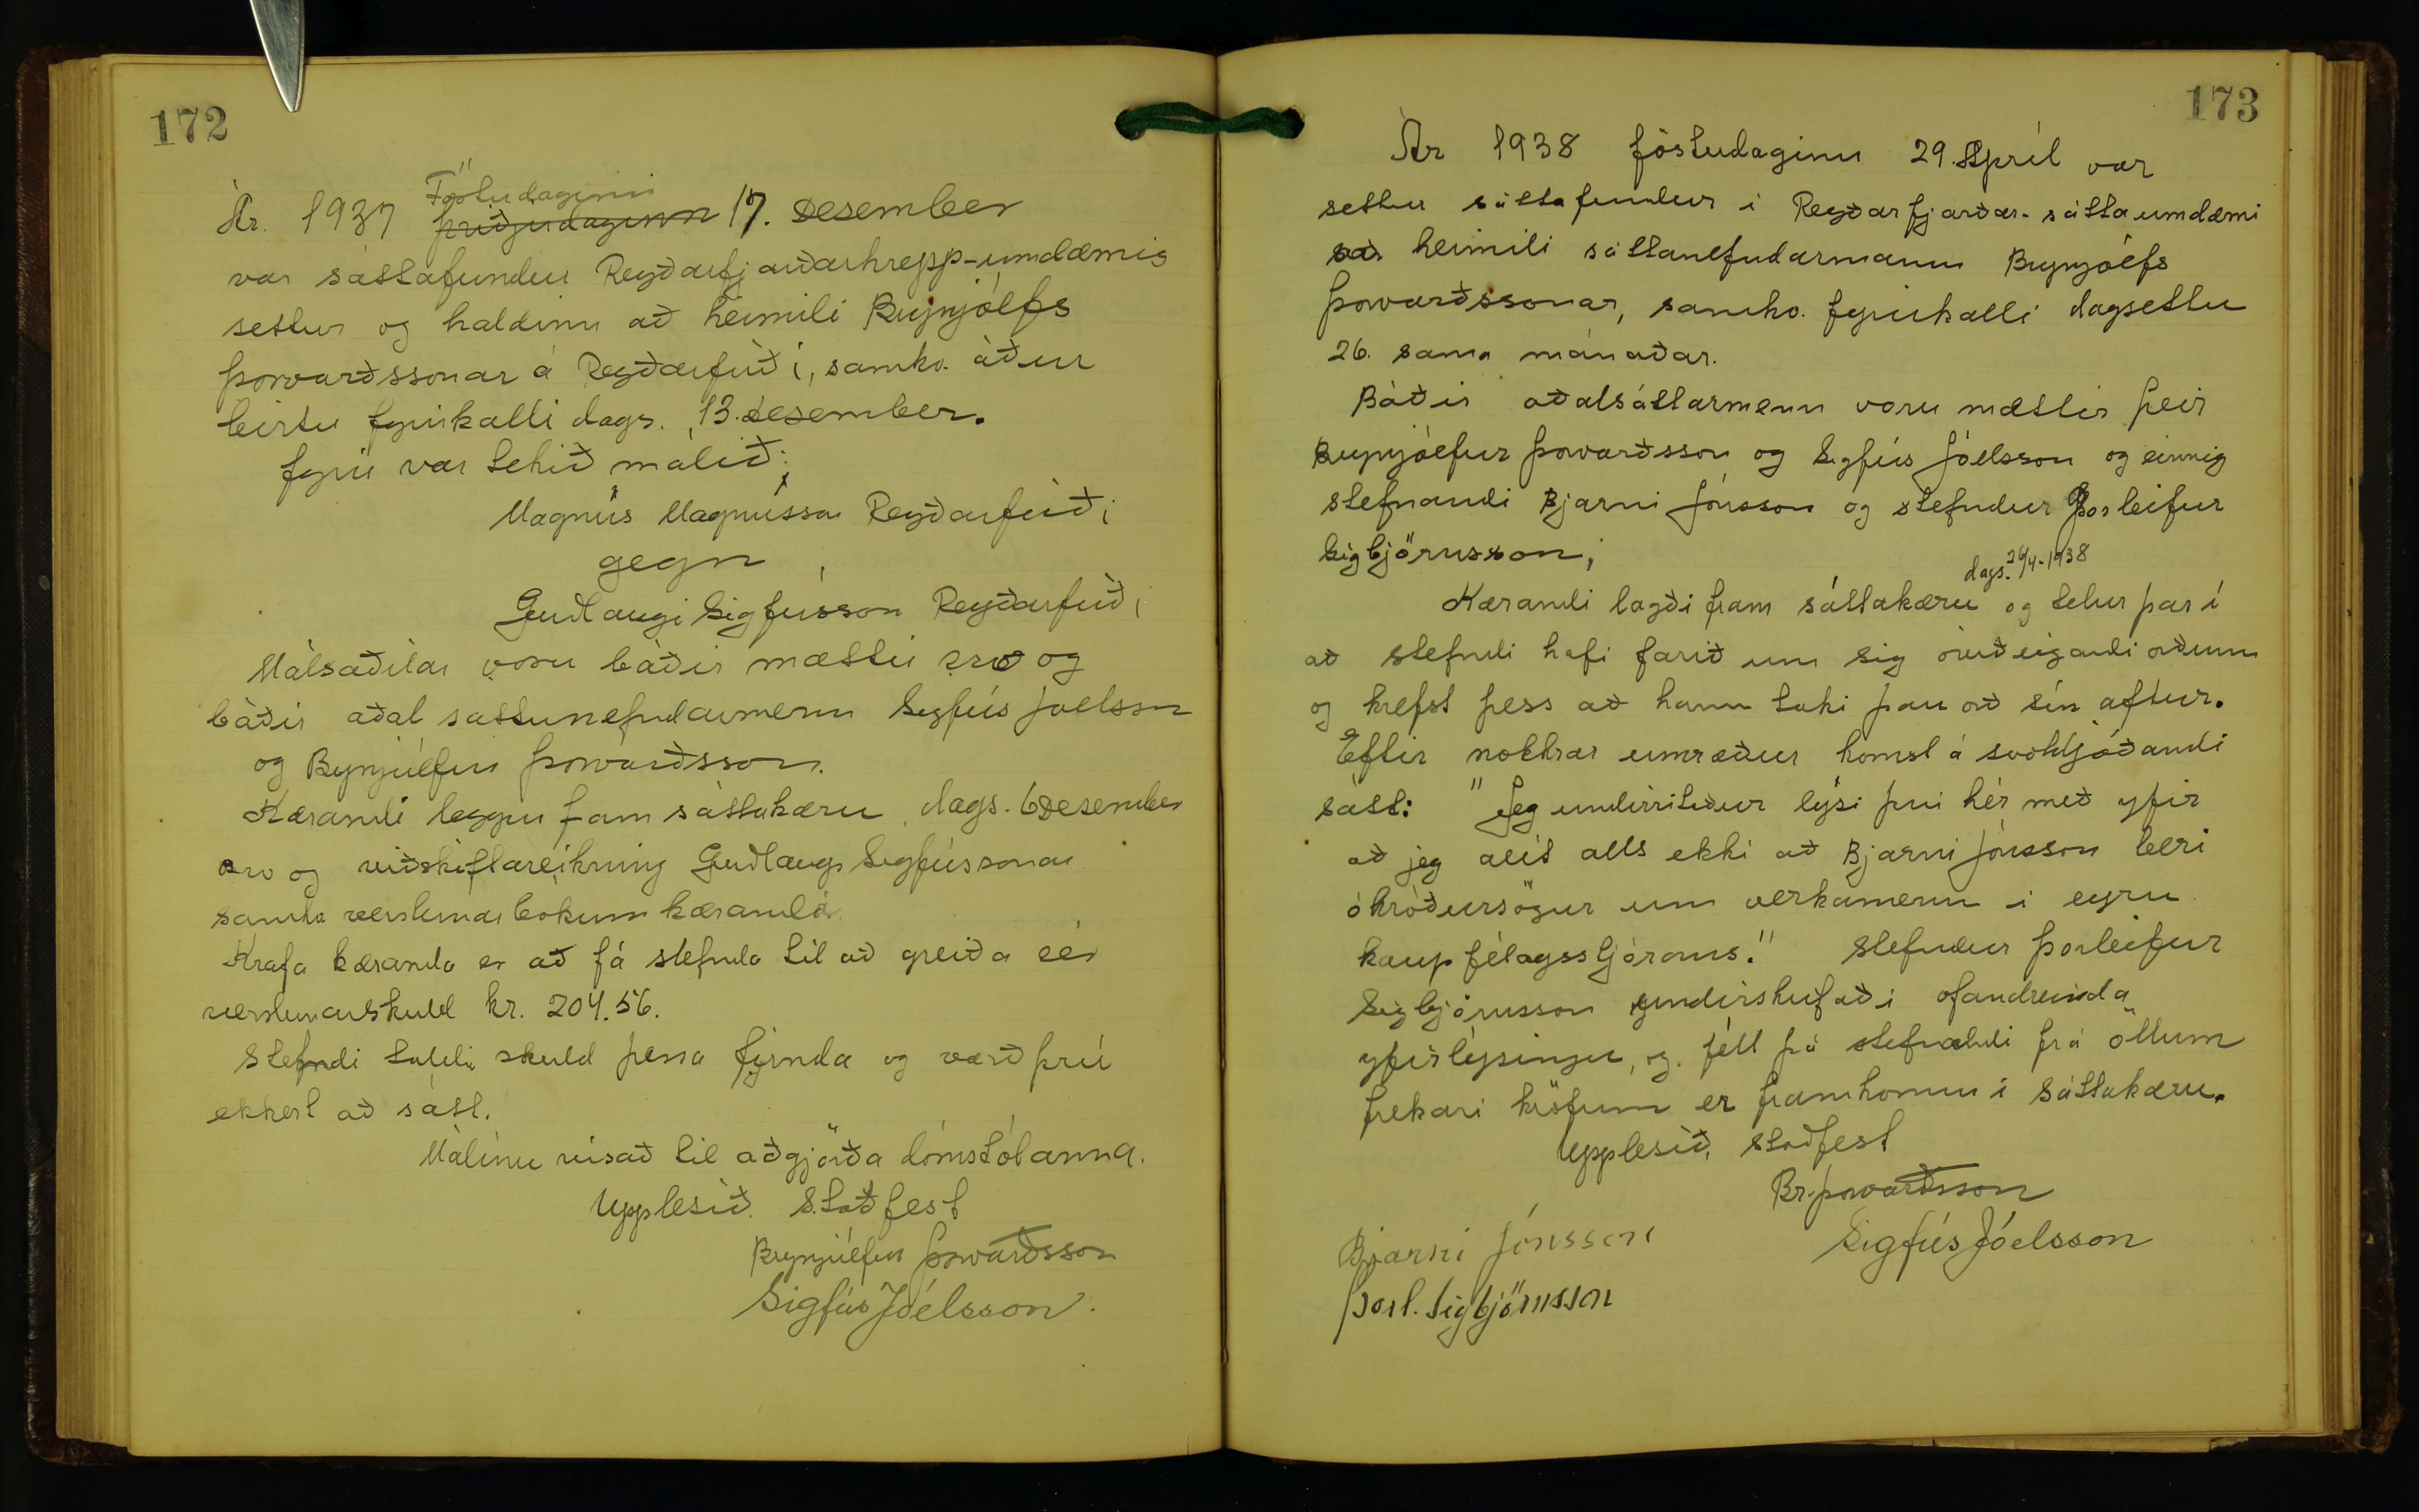 172
Föstudaginn
Ár. 1937 þriðjudaginn 17. Desember
var sáttafundur Reyðarfjarðarhrepp-umdæmis
settur og haldinn að heimili Brynjólfs
Þorvarðssonar á Reyðarfirði, samkv. áður
birtu fyrirkalli dags. 13. desember.
fyrir var tekið málið;
Magnús Magnússon Reyðarfirði
gegn
Guðlaugi Sigfússon Reyðarfirði
Málsaðilar voru báðir mættir svo og
báðir aðal sáttanefndarmenn Sigfús Jóelsson
og Brynjólfur Þorvarðsson.
Kærandi leggur fram sáttakæru dags. 6 Desember
svo og viðskiftareikning Guðlaugs Sigfússonar
samkv verslunarbókum kæranda
Krafa kæranda er að fá stefnda til að greiða
verslunarskuld kr. 204.56.
Stefndi taldi skuld þessa fyrnda og varð því
ekkert að sátt.
Málinu vísað til aðgjörða dómstólanna.
Upplesið. Staðfest
Brynjólfur Þorvarðsson
Sigfús Jóelsson.
173
Ár 1938 föstudaginn 29. Apríl var
settur sáttafundur í Reyðarfjarðar-sáttaumdæmi
að heimili sáttanefndarmanns Brynjólfs
Þorvarðssonar, samkv. fyrirkalli dagsettu
26. sama mánaðar.
Báðir aðalsáttarmenn voru mættir þeir
Brynjólfur Þorvarðsson og Sigfús Jóelsson og einnig
stefnandi Bjarni Jónsson og stefndur Þorleifur
Sigbjörnsson;
dags. 26/4-1938
Kærandi lagði fram sáttakæru og telur þar í
að stefndi hafi farið um sig óviðeigandi orðum
og krefst þess að hann taki þau orð sín aftur.
Eftir nokkrar umræður komst á svohljóðandi
sátt: "Jeg undirritaður lýsi því hér með yfir
að jeg alít alls ekki að Bjarni Jónsson beri
óhróðursögur um verkamenn í eyru
kaupfélagsstjórans." Stefndur Þorleifur
Sigbjörnsson undirskrifaði ofandreinda
yfirlýsingu, og féll þá stefnandi frá öllum
frekari kröfum er framkomu í sáttakæru.
Upplesið, Staðfest
Br. Þorvarðsson
Bjarni Jónsson
Sigfús Jóelsson
Þorl. Sigbjörnsson